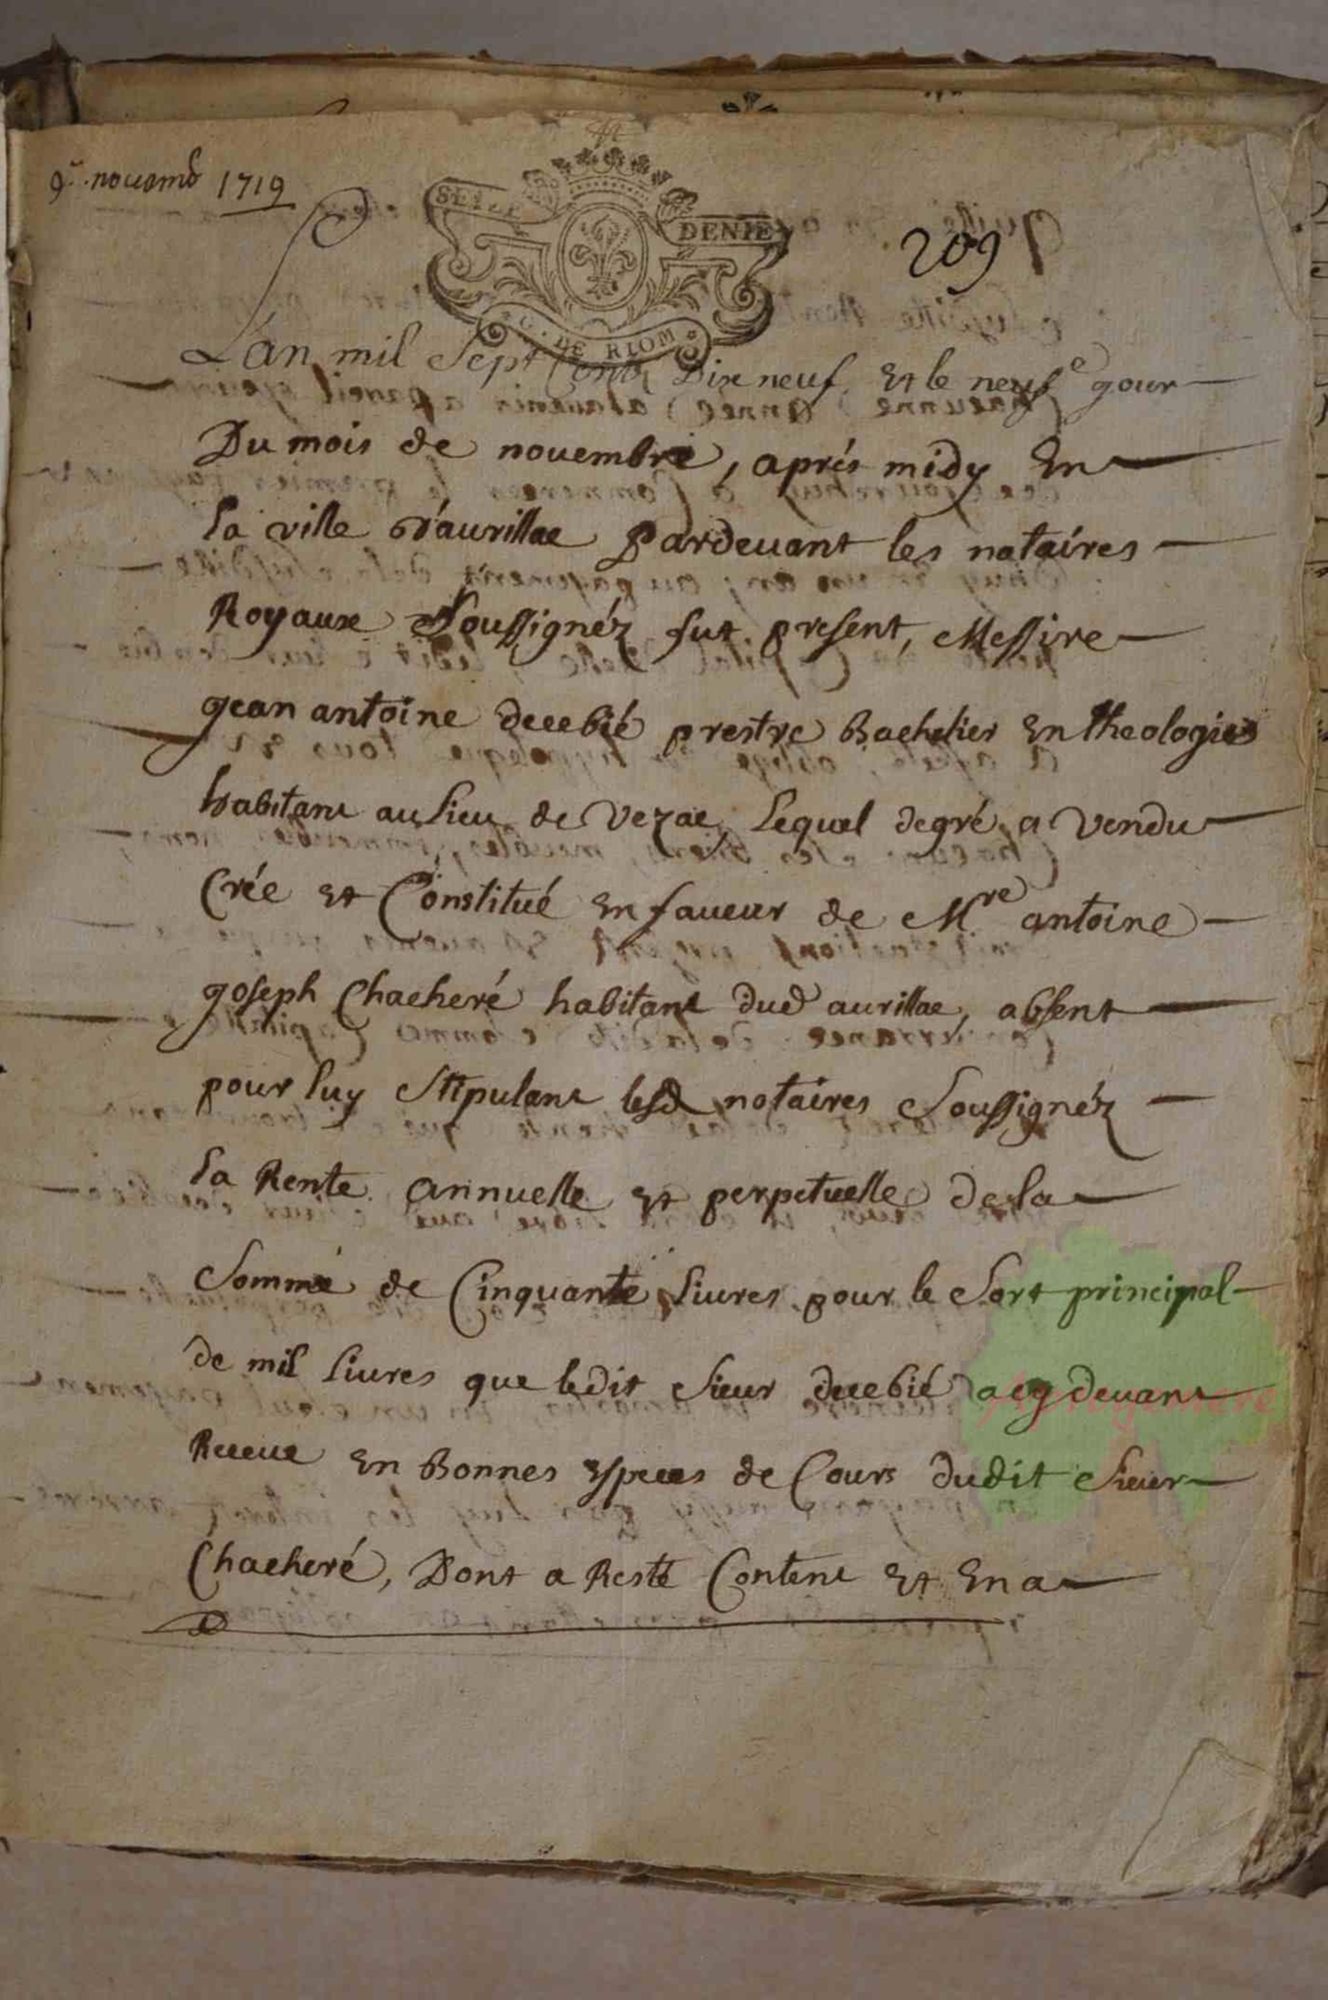 9e. nouemb 1719
SEIZE DENIE
209
G. DE RIOM
L'an mil Sept Cents Dix neuf, Et le neufe jour
Du mois de nouembre, aprés midy En
la ville d'aurillac Pardeuant les nataires
Royaux Soussignéz fut present, Messire
jean antoine decebié prestre Bachelier En theologie
habitant au lieu de Vezac, lequel degré a vendu
Crée et Constitué En faueur de Mre antoine
joseph Chacheré habitant dud aurillac, absent
pour luy Stipulant lesd notaires Soussignéz
la Rente annuelle et perpetuelle de la
Somme de Cinquante liures pour le Sort principal
de mil liures que ledit Sieur decebié a cy deuant
Receue En Bonnes Especes de Cours dudit Sieur
Chacheré, Dont a Resté Content Et En a